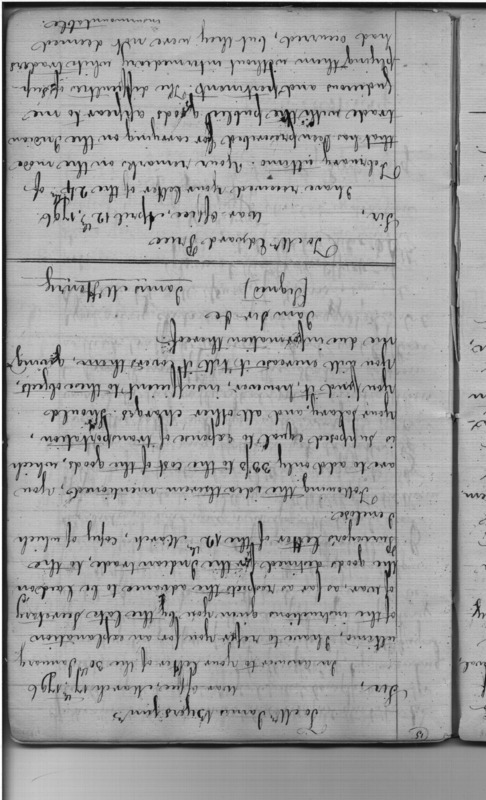 15
To Mr James Byers, Junr
War office, March 17th 1796
Sir,
In answer to your letter of the 30th January
ultimo, I have to refer you for an explanation
of the instructions given you by the late Secretary
of War, as far as respects the advance to be laid on
the goods destined for the Indian trade, to the
Purveyor's letter of the 12th March, copy of which
I enclose.
Following the idea therein mentioned, you
are to add only 33⅓ to the cost of the goods, which
is supposed equal to expence of transportation,
your salary, and all other charges. Should
you find it, however, insufficient to these objects,
you will encrease it till it covers them, giving
me due information thereof.
I am Sir &c
(Signed) James McHenry
To Mr Edward Price
War Office, April 12th, 1796
Sir,
I have received your letter of the 24th of
February ultimo. Your remarks on the mode
that has been prescribed for carrying on the Indian
trade with the public goods appear to me
judicious and pertinent. The difficulties of sup-
plying them without intermediary white traders
had occurred, but they were not deemed
insurmountable.